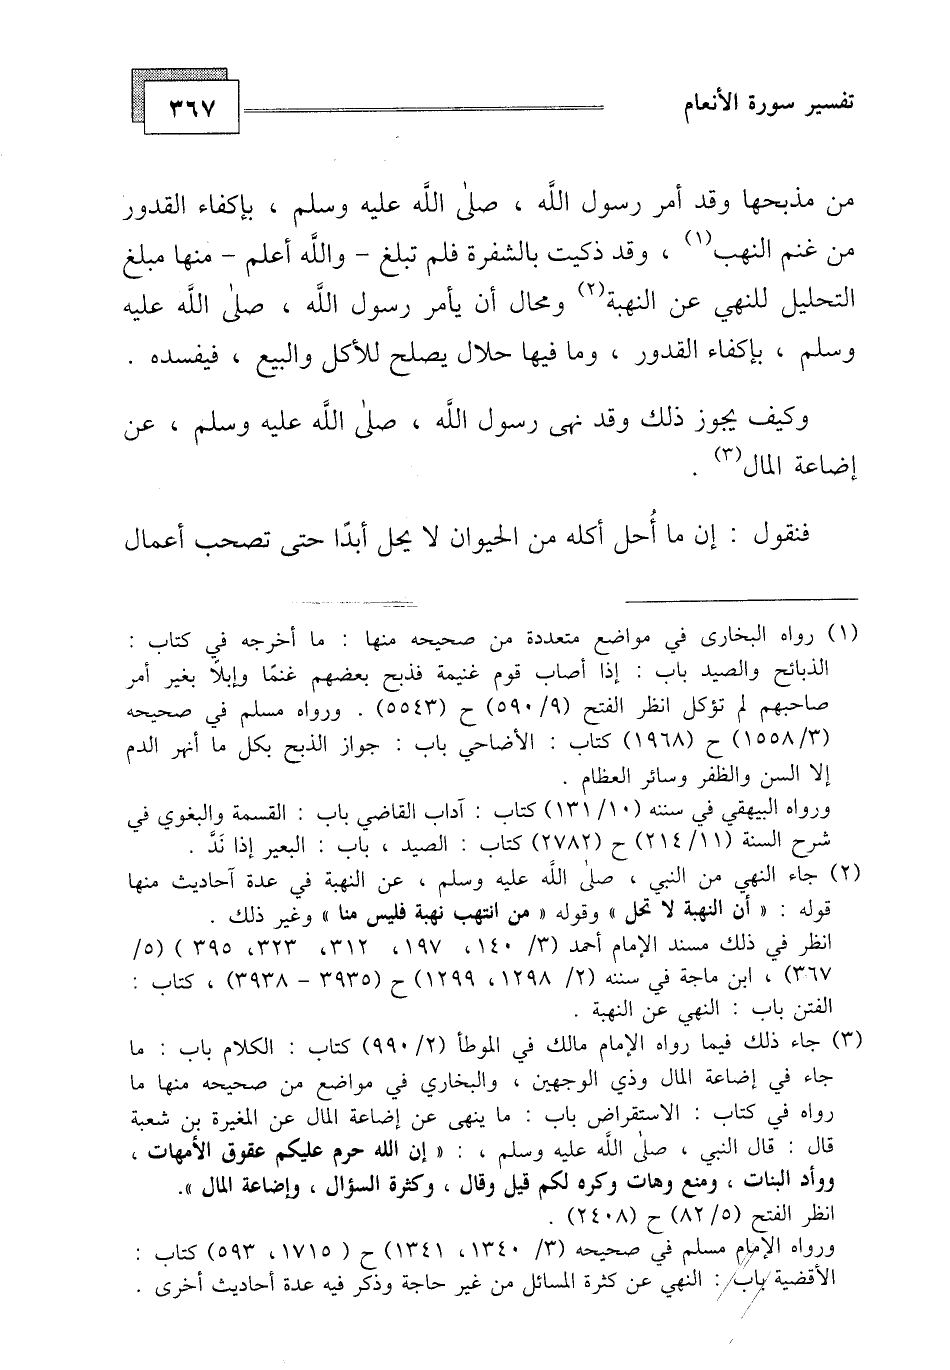 تفسير سورة الأنعام
٣٦٧
من مذبحها وقد أمر رسول اللَّه ، صلىٰ اللَّه عليه وسلم ، بإكفاء القدور
من غنم النهب(١) ، وقد ذكيت بالشفرة فلم تبلغ – واللَّه أعلم – منها مبلغ
التحليل للنهي عن النهبة(٢) ومحال أن يأمر رسول اللَّه ، صلىٰ اللَّه عليه
وسلم ، بإكفاء القدور ، وما فيها حلال يصلح للأكل والبيع ، فيفسده .
وكيف يجوز ذلك وقد نهى رسول اللَّه ، صلىٰ اللَّه عليه وسلم ، عن
إضاعة المال(٣) .
فنقول : إن ما أُحل أكله من الحيوان لا يحل أبدًا حتى تصحب أعمال
(١) رواه البخارى في مواضع متعددة من صحيحه منها : ما أخرجه في كتاب :
الذبائح والصيد باب : إذا أصاب قوم غنيمة فذبح بعضهم غنمًا وإبلًا بغير أمر
صاحبهم لم تؤكل انظر الفتح (٩/ ٥٩٠) ح (٥٥٤٣) . ورواه مسلم في صحيحه
(٣/ ١٥٥٨) ح (١٩٦٨) كتاب : الأضاحي باب : جواز الذبح بكل ما أنهر الدم
إلا السن والظفر وسائر العظام .
ورواه البيهقي في سننه (١٠/ ١٣١) كتاب : آداب القاضي باب : القسمة والبغوي في
شرح السنة (١١/ ٢١٤) ح (٢٧٨٢) كتاب : الصيد ، باب : البعير إذا نَدَّ .
(٢) جاء النهي من النبي ، صلىٰ اللَّه عليه وسلم ، عن النهبة في عدة آحاديث منها
قوله : « أن النهبة لا تحل » وقوله « من انتهب نهبة فليس منا » وغير ذلك .
انظر في ذلك مسند الإمام أحمد (٣/ ١٤٠، ١٩٧، ٣١٢، ٣٢٣، ٣٩٥ ) (٥/
٣٦٧) ، ابن ماجة في سننه (٢/ ١٢٩٨، ١٢٩٩) ح (٣٩٣٥ – ٣٩٣٨) ، كتاب :
الفتن باب : النهي عن النهبة .
(٣) جاء ذلك فيما رواه الإمام مالك في الموطأ (٢/ ٩٩٠) كتاب : الكلام باب : ما
جاء في إضاعة المال وذي الوجهين ، والبخاري في مواضع من صحيحه منها ما
رواه في كتاب : الاستقراض باب : ما ينهى عن إضاعة المال عن المغيرة بن شعبة
قال : قال النبي ، صلىٰ اللَّه عليه وسلم ، : « إن الله حرم عليكم عقوق الأمهات ،
ووأد البنات ، ومنع وهات وكره لكم قيل وقال ، وكثرة السؤال ، وإضاعة المال ».
انظر الفتح (٥/ ٨٢) ح (٢٤٠٨) .
ورواه الإمام مسلم في صحيحه (٣/ ١٣٤٠، ١٣٤١) ح ( ١٧١٥، ٥٩٣) كتاب :
الأقضية باب : النهي عن كثرة المسائل من غير حاجة وذكر فيه عدة أحاديث أخرى .